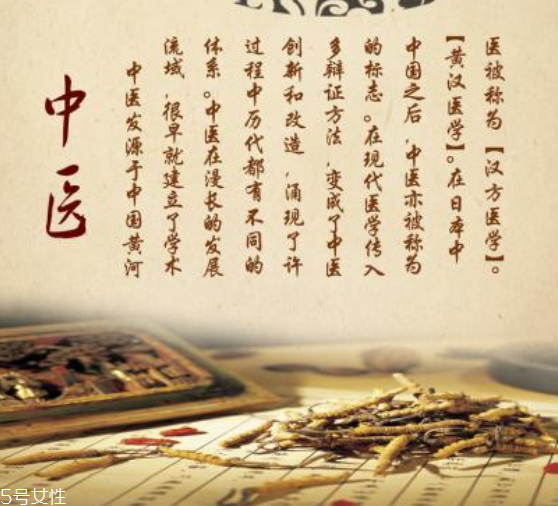 中医
中医发源于中国黄河
流域，很早就建立了学术
体系。中医在漫长的发展
过程中历代都有不同的
创新和改造，涌现了许
多辩证方法，变成了中医
的标志。在现代医学传入
中国之后，中医亦被称为
【黄汉医学】。在日本中
医被称为【汉方医学】。
5号女性